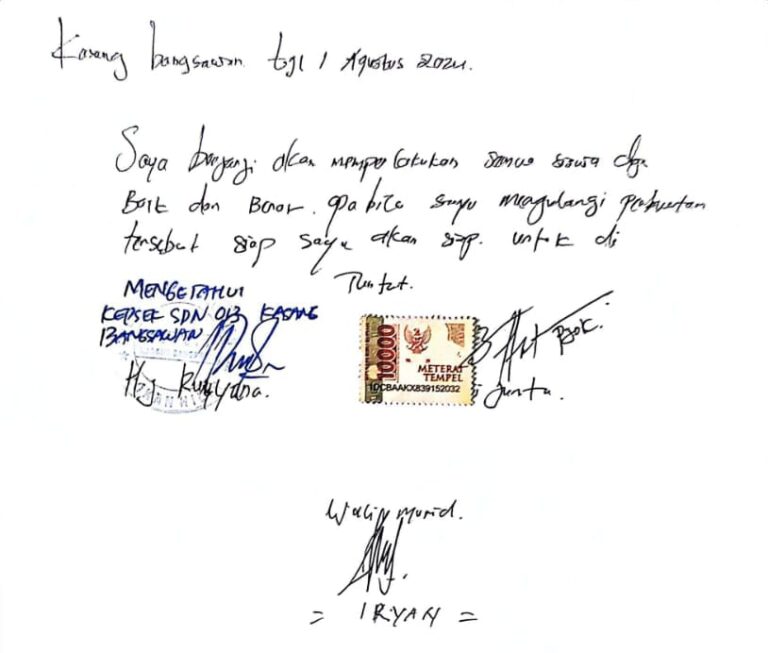 Kasang bangsawan tgl 1 Agustus 2024.
Saya berjanji akan memperlakukan semua siswa dgn
Baik dan Benar. apabila saya mengulangi perbuatan
tersebut siap saya akan siap. untuk di
Tuntut.
MENGETAHUI
KEPSEK SDN 013 KASANG
BANGSAWAN
Hj
10000
METERAI
TEMPEL
1DCBAAKX839152032
Wali murid.
= IRYAN =